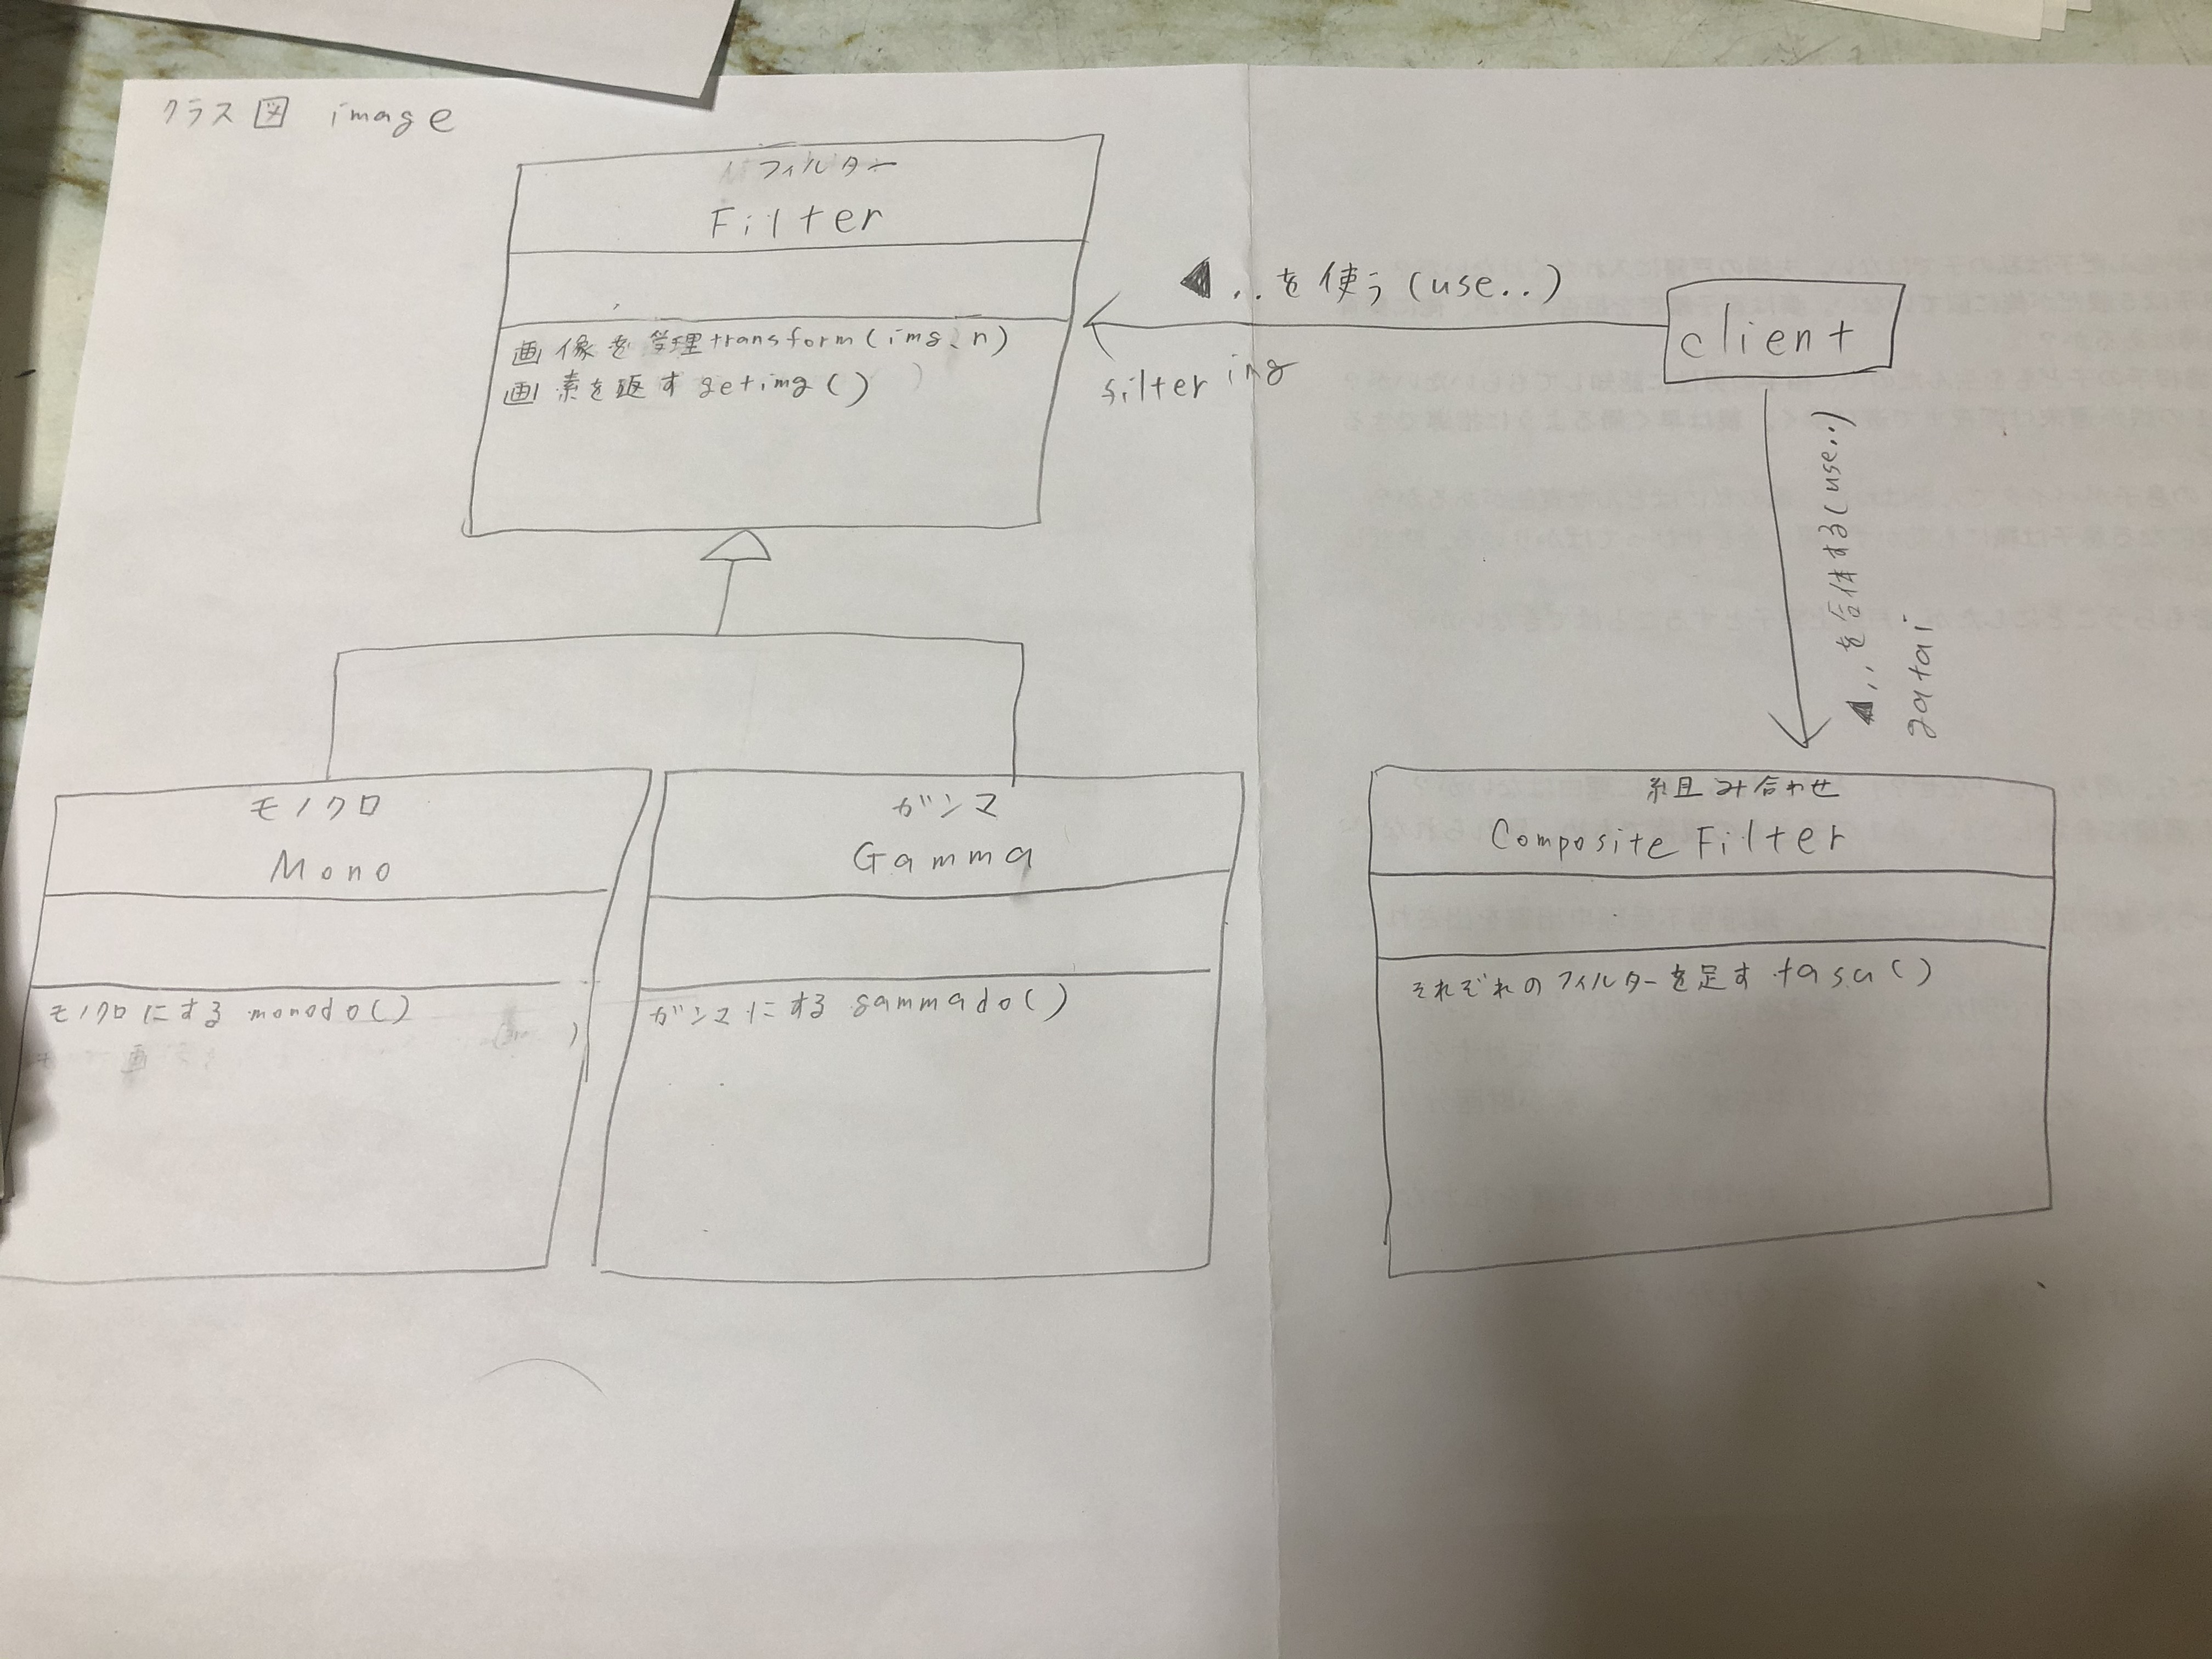 クラス図 image
フィルター
Filter
画像を管理transform(img、n)
画素を返す getimg()
◀..を使う(use..)
filtering
client
◀..を合体する(use..)
gatai
モノクロ
Mono
モノクロにする monodo()
ガンマ
Gamma
ガンマにする gammado()
組み合わせ
Composite Filter
それぞれのフィルターを足す tasu()